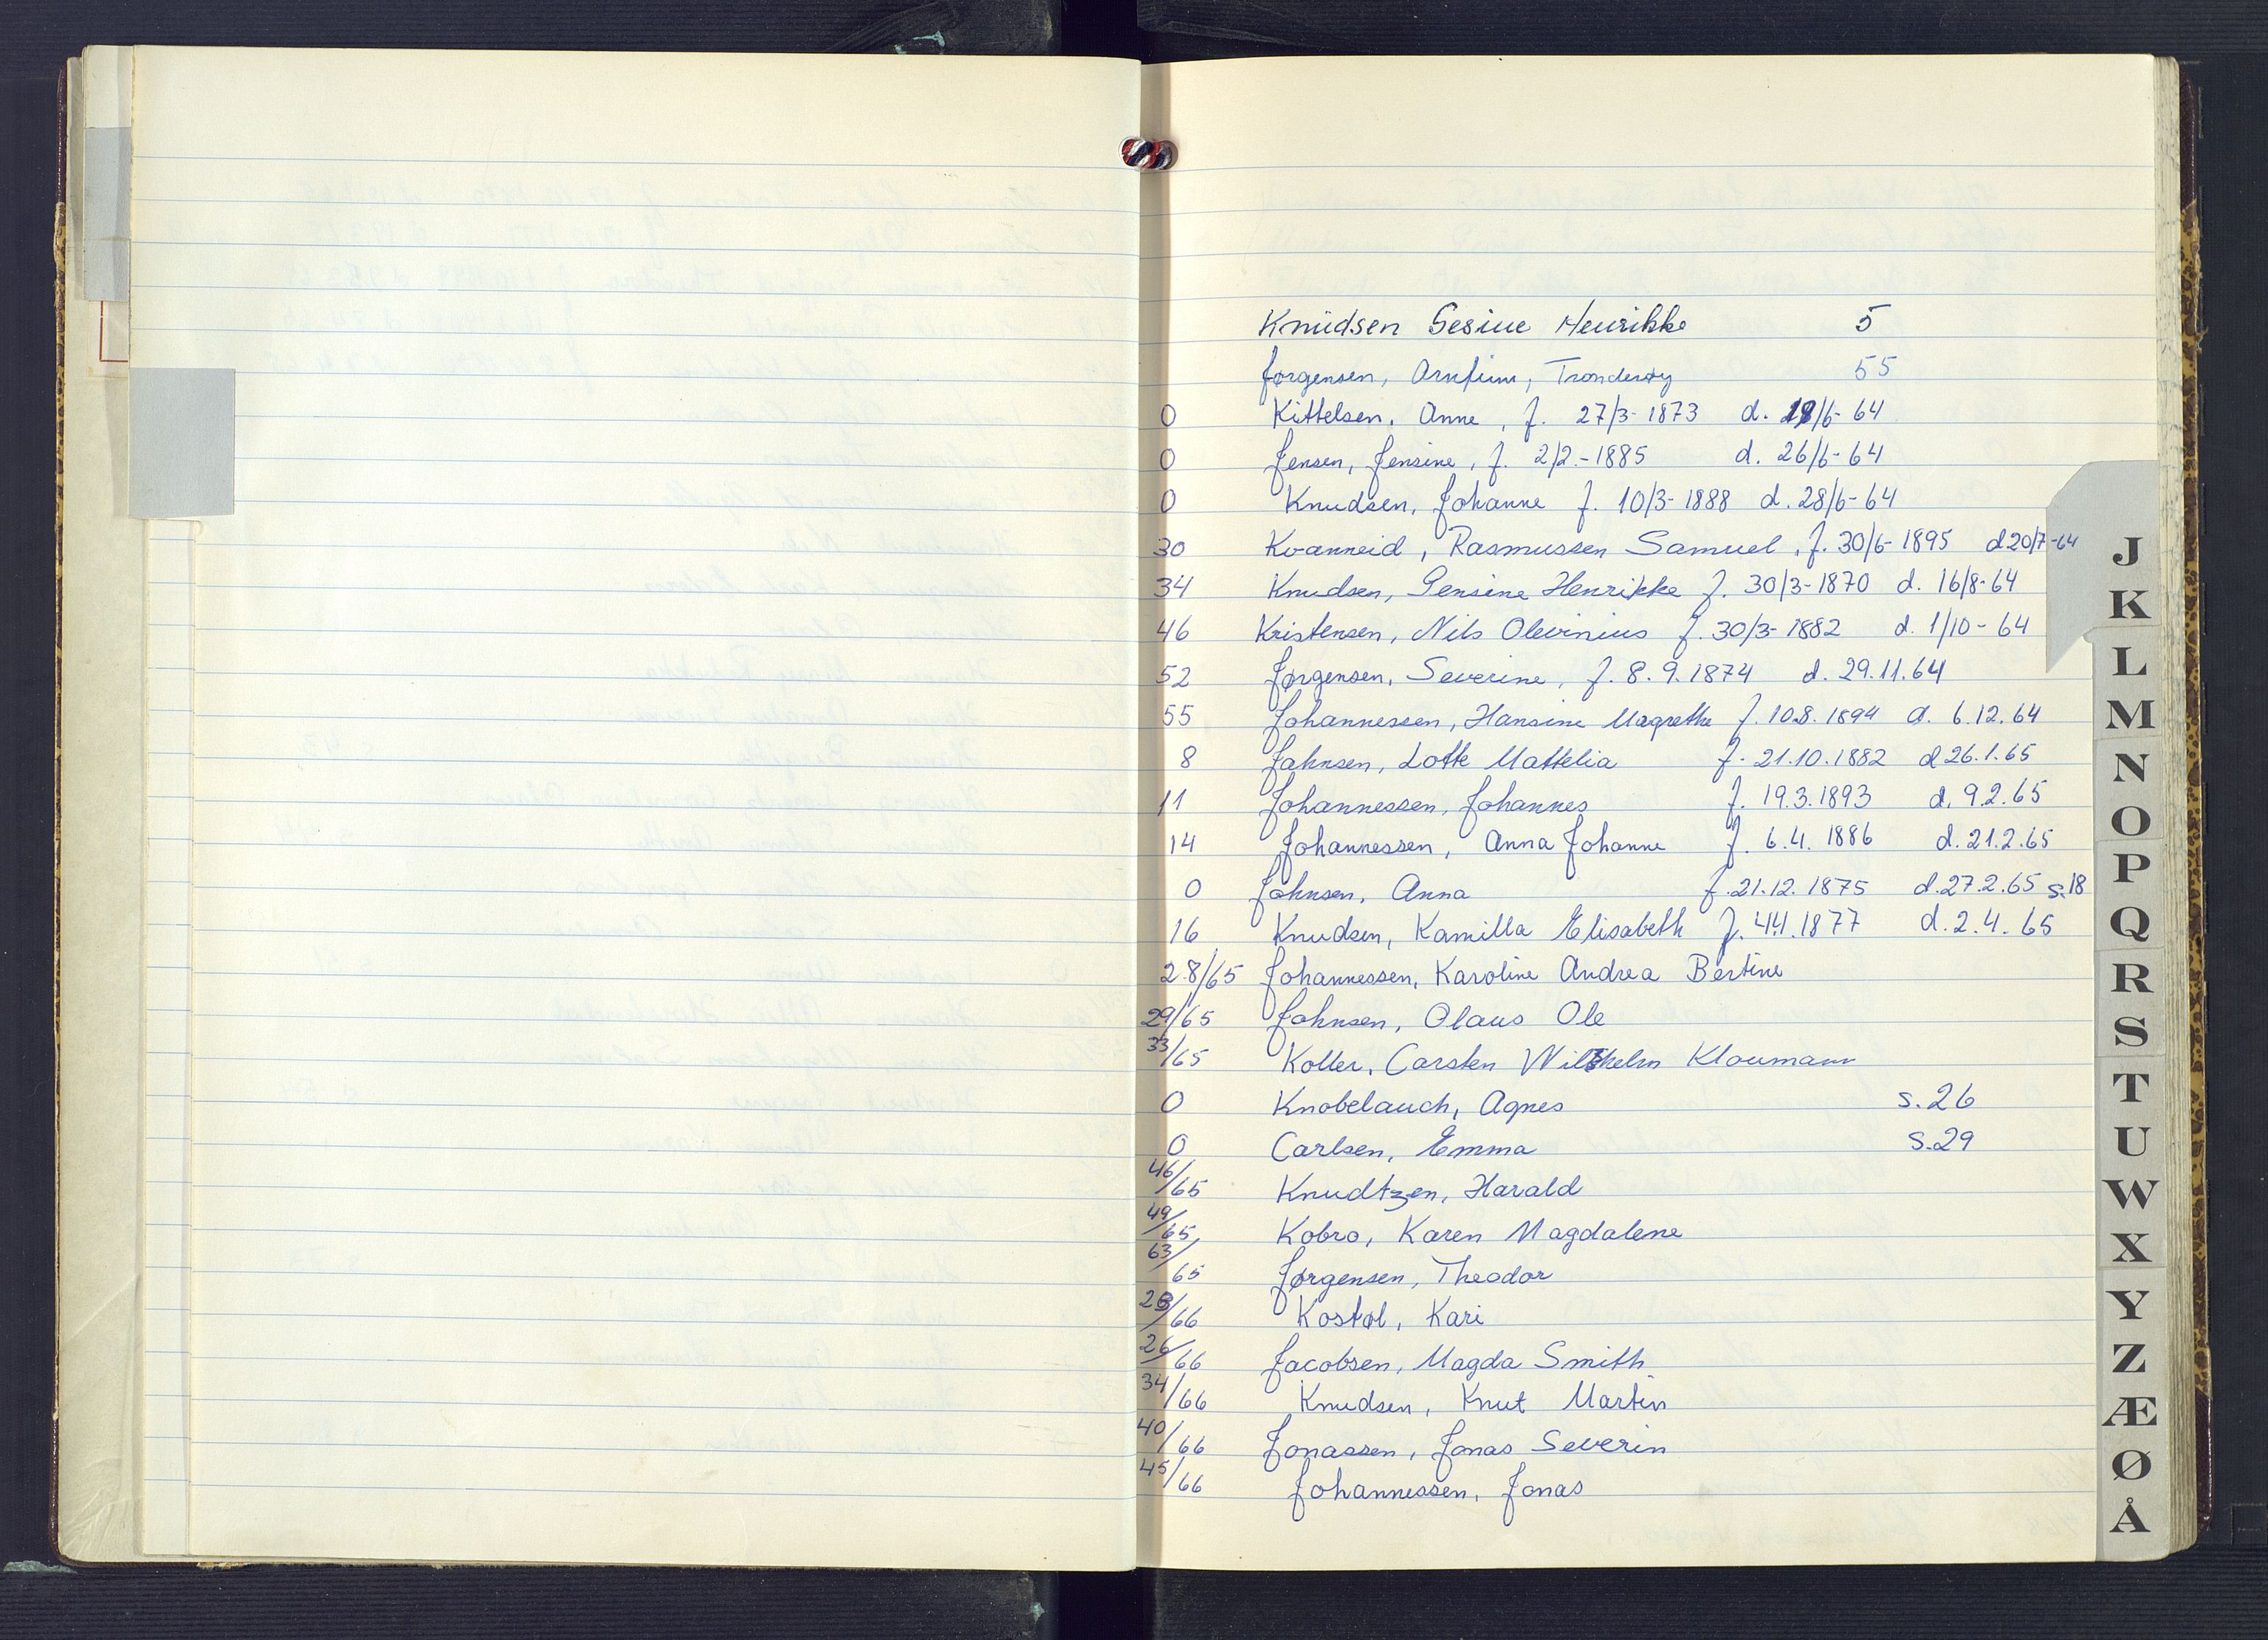 Knudsen Gesine Henrikke 5
Jørgensen, Arnfinn, Trondenøy 55
0 Kittelsen, Anne, f. 27/3-1873 d. 18/6-64
0 Jensen, Jensine, f. 2/2.-1885 d. 26/6-64
0 Knudsen, Johanne f. 10/3-1888 d. 28/6-64
30 Kvanneid, Rasmussen Samuel, f. 30/6-1895 d 20/7-64
34 Knudsen, Gensine Henrikke f. 30/3-1870 d. 16/8-64
46 Kristensen, Nils Olevinius f. 30/3-1882 d. 1/10-64
52 Jørgensen, Severine, f. 8.9.1874 d. 29.11.64
55 Johannessen, Hansine Magrethe f. 10.8.1894 d. 6.12.64
8 Jahnsen, Lotte Mattelia f. 21.10.1882 d 26.1.65
11 Johannessen, Johannes f. 19.3.1893 d. 9.2.65
14 Johannessen, Anna Johanne f. 6.4.1886 d. 21.2.65
0 Johnsen, Anna f. 21.12.1875 d. 27.2.65 s.18
16 Knudsen, Kamilla Elisabeth f. 4.4.1877 d. 2.4.65
28/65 Johannessen, Karoline Andrea Bertine
29/65 Johnsen, Olaus Ole
33/65 Koller, Carsten Wilhelm Kloumann
0 Knobelauch, Agnes s.26
0 Carlsen, Emma s.29
46/65 Knudtzen, Harald
49/65 Kobro, Karen Magdalene
63/65 Jørgensen, Theodor
23/66 Kostøl, Kari
26/66 Jacobsen, Magda Smith
34/66 Knudsen, Knut Martin
40/66 Jonassen, Jonas Severin
45/66 Johannessen, Jonas
J
K
L
M
N
O
P
Q
R
S
T
U
W
X
Y
Z
Æ
Ø
Å